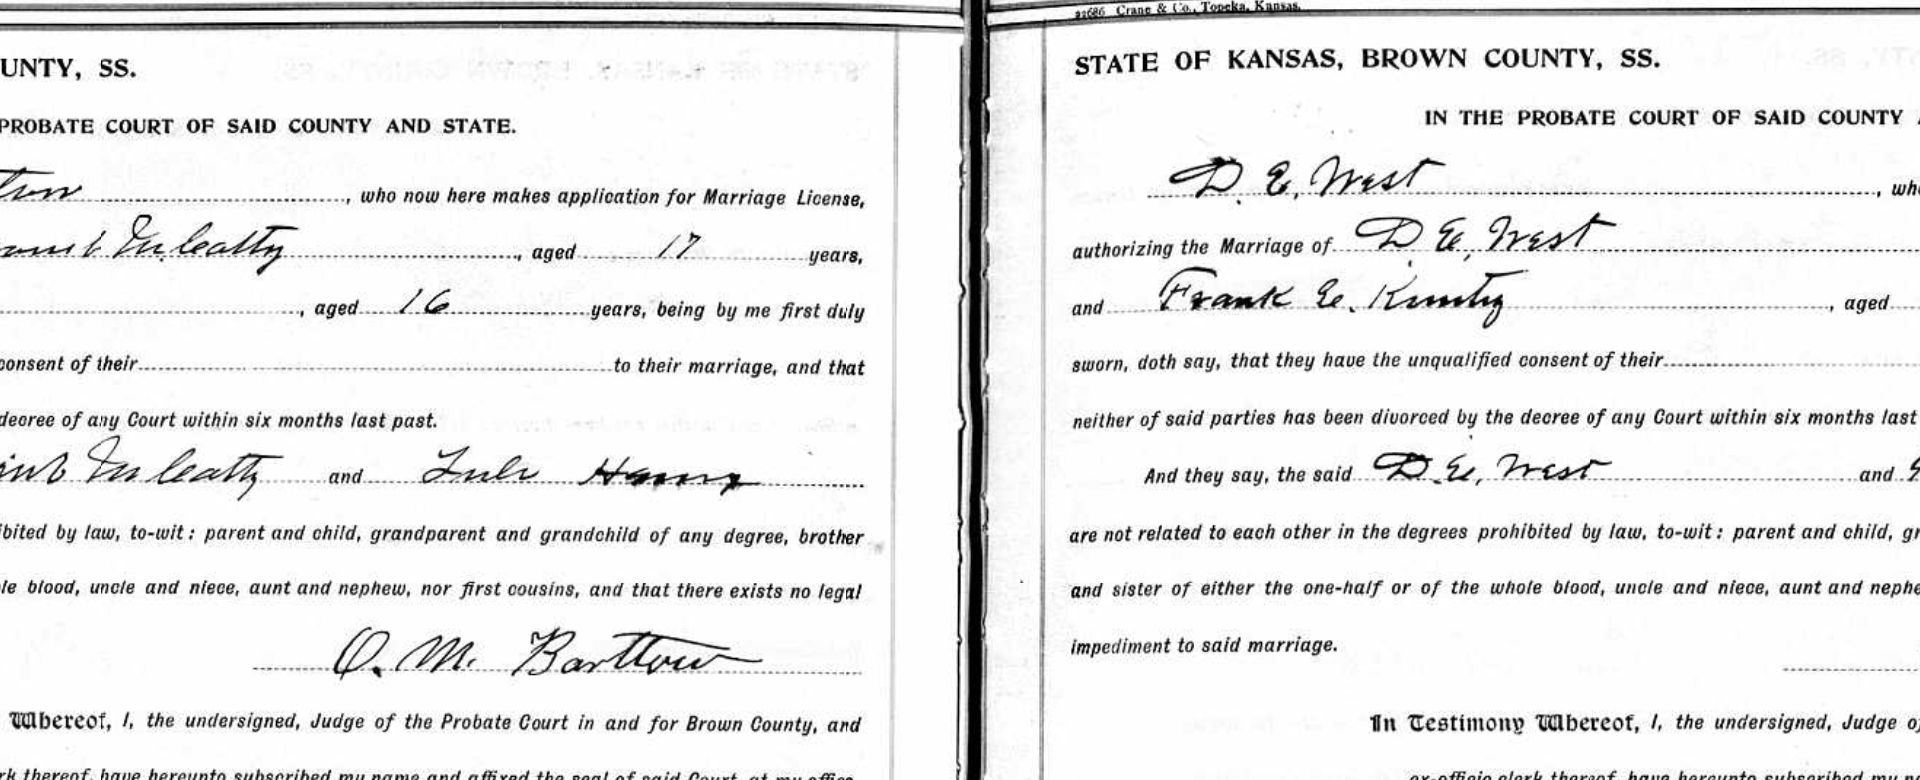 UNTY, SS.
PROBATE COURT OF SAID COUNTY AND STATE.
, who now here makes application for Marriage License,
, aged 17 years,
, aged 16 years, being by me first duly
consent of their to their marriage, and that
decree of any Court within six months last past.
and
ibited by law, to-wit: parent and child, grandparent and grandchild of any degree, brother
le blood, uncle and niece, aunt and nephew, nor first cousins, and that there exists no legal
O. M. Barttow
Whereof, I, the undersigned, Judge of the Probate Court in and for Brown County, and
rk thereof, have hereunto subscribed my name and affixed the seal of said Court, at my office
22686 Crane & Co., Topeka, Kansas.
STATE OF KANSAS, BROWN COUNTY, SS.
IN THE PROBATE COURT OF SAID COUNTY
D. E. West , who
authorizing the Marriage of D. E. West
and Frank E. , aged
sworn, doth say, that they have the unqualified consent of their
neither of said parties has been divorced by the decree of any Court within six months last
And they say, the said D. E. West and
are not related to each other in the degrees prohibited by law, to-wit: parent and child, gr
and sister of either the one-half or of the whole blood, uncle and niece, aunt and nephe
impediment to said marriage.
In Testimony Whereof, I, the undersigned, Judge of
ex-officio clerk thereof, have hereunto subscribed my